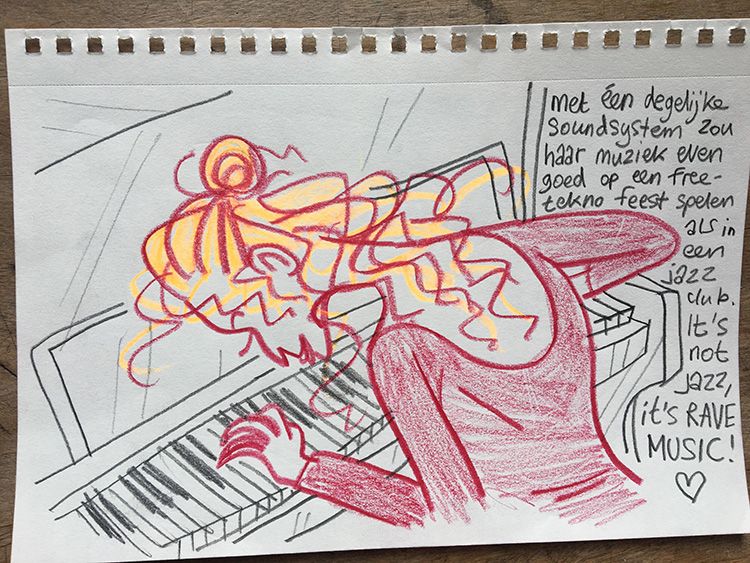 met één degelijke
soundsystem zou
haar muziek even
goed op een free-
tekno feest spelen
als in
een
jazz
club.
It's
not
jazz,
it's RAVE
MUSIC!